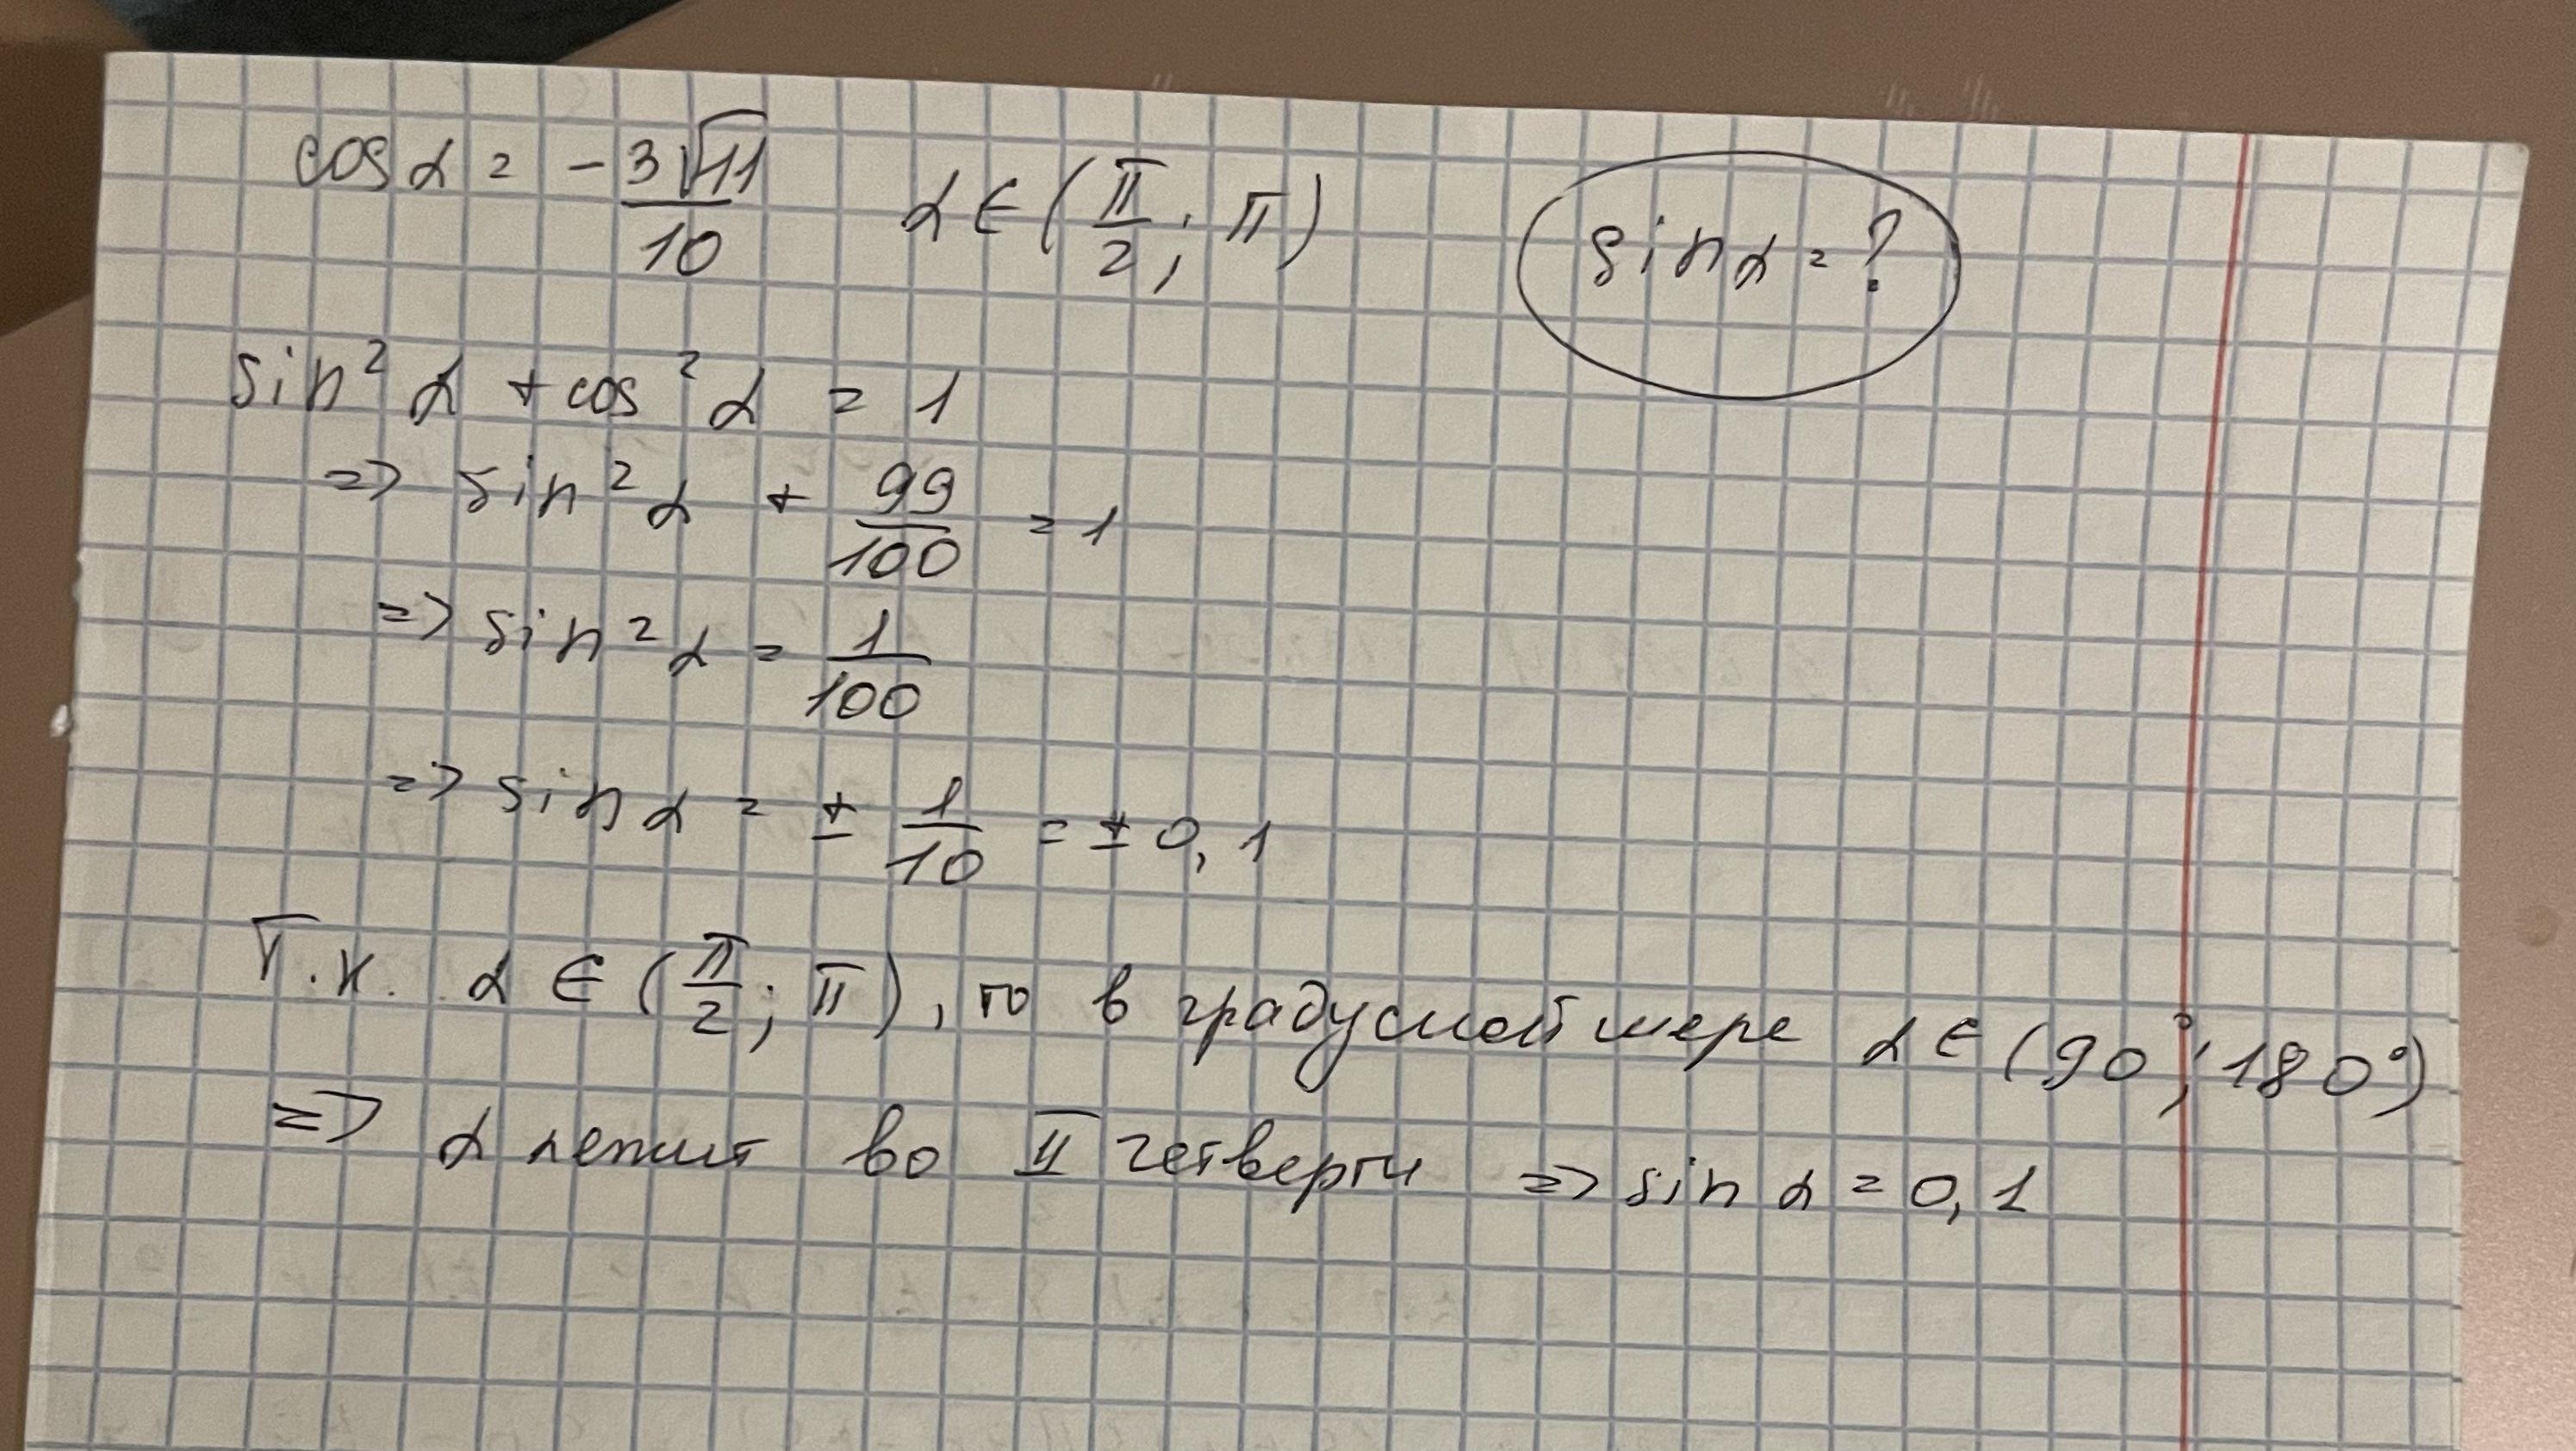 cos α = - 3√11/10   α ∈ (π/2; π)   sin α = ?
sin² α + cos² α = 1
=> sin² α + 99/100 = 1
=> sin² α = 1/100
=> sin α = ± 1/10 = ± 0,1
Т.к. α ∈ (π/2; π), то в градусной мере α ∈ (90°; 180°)
=> α лежит во II четверти => sin α = 0,1